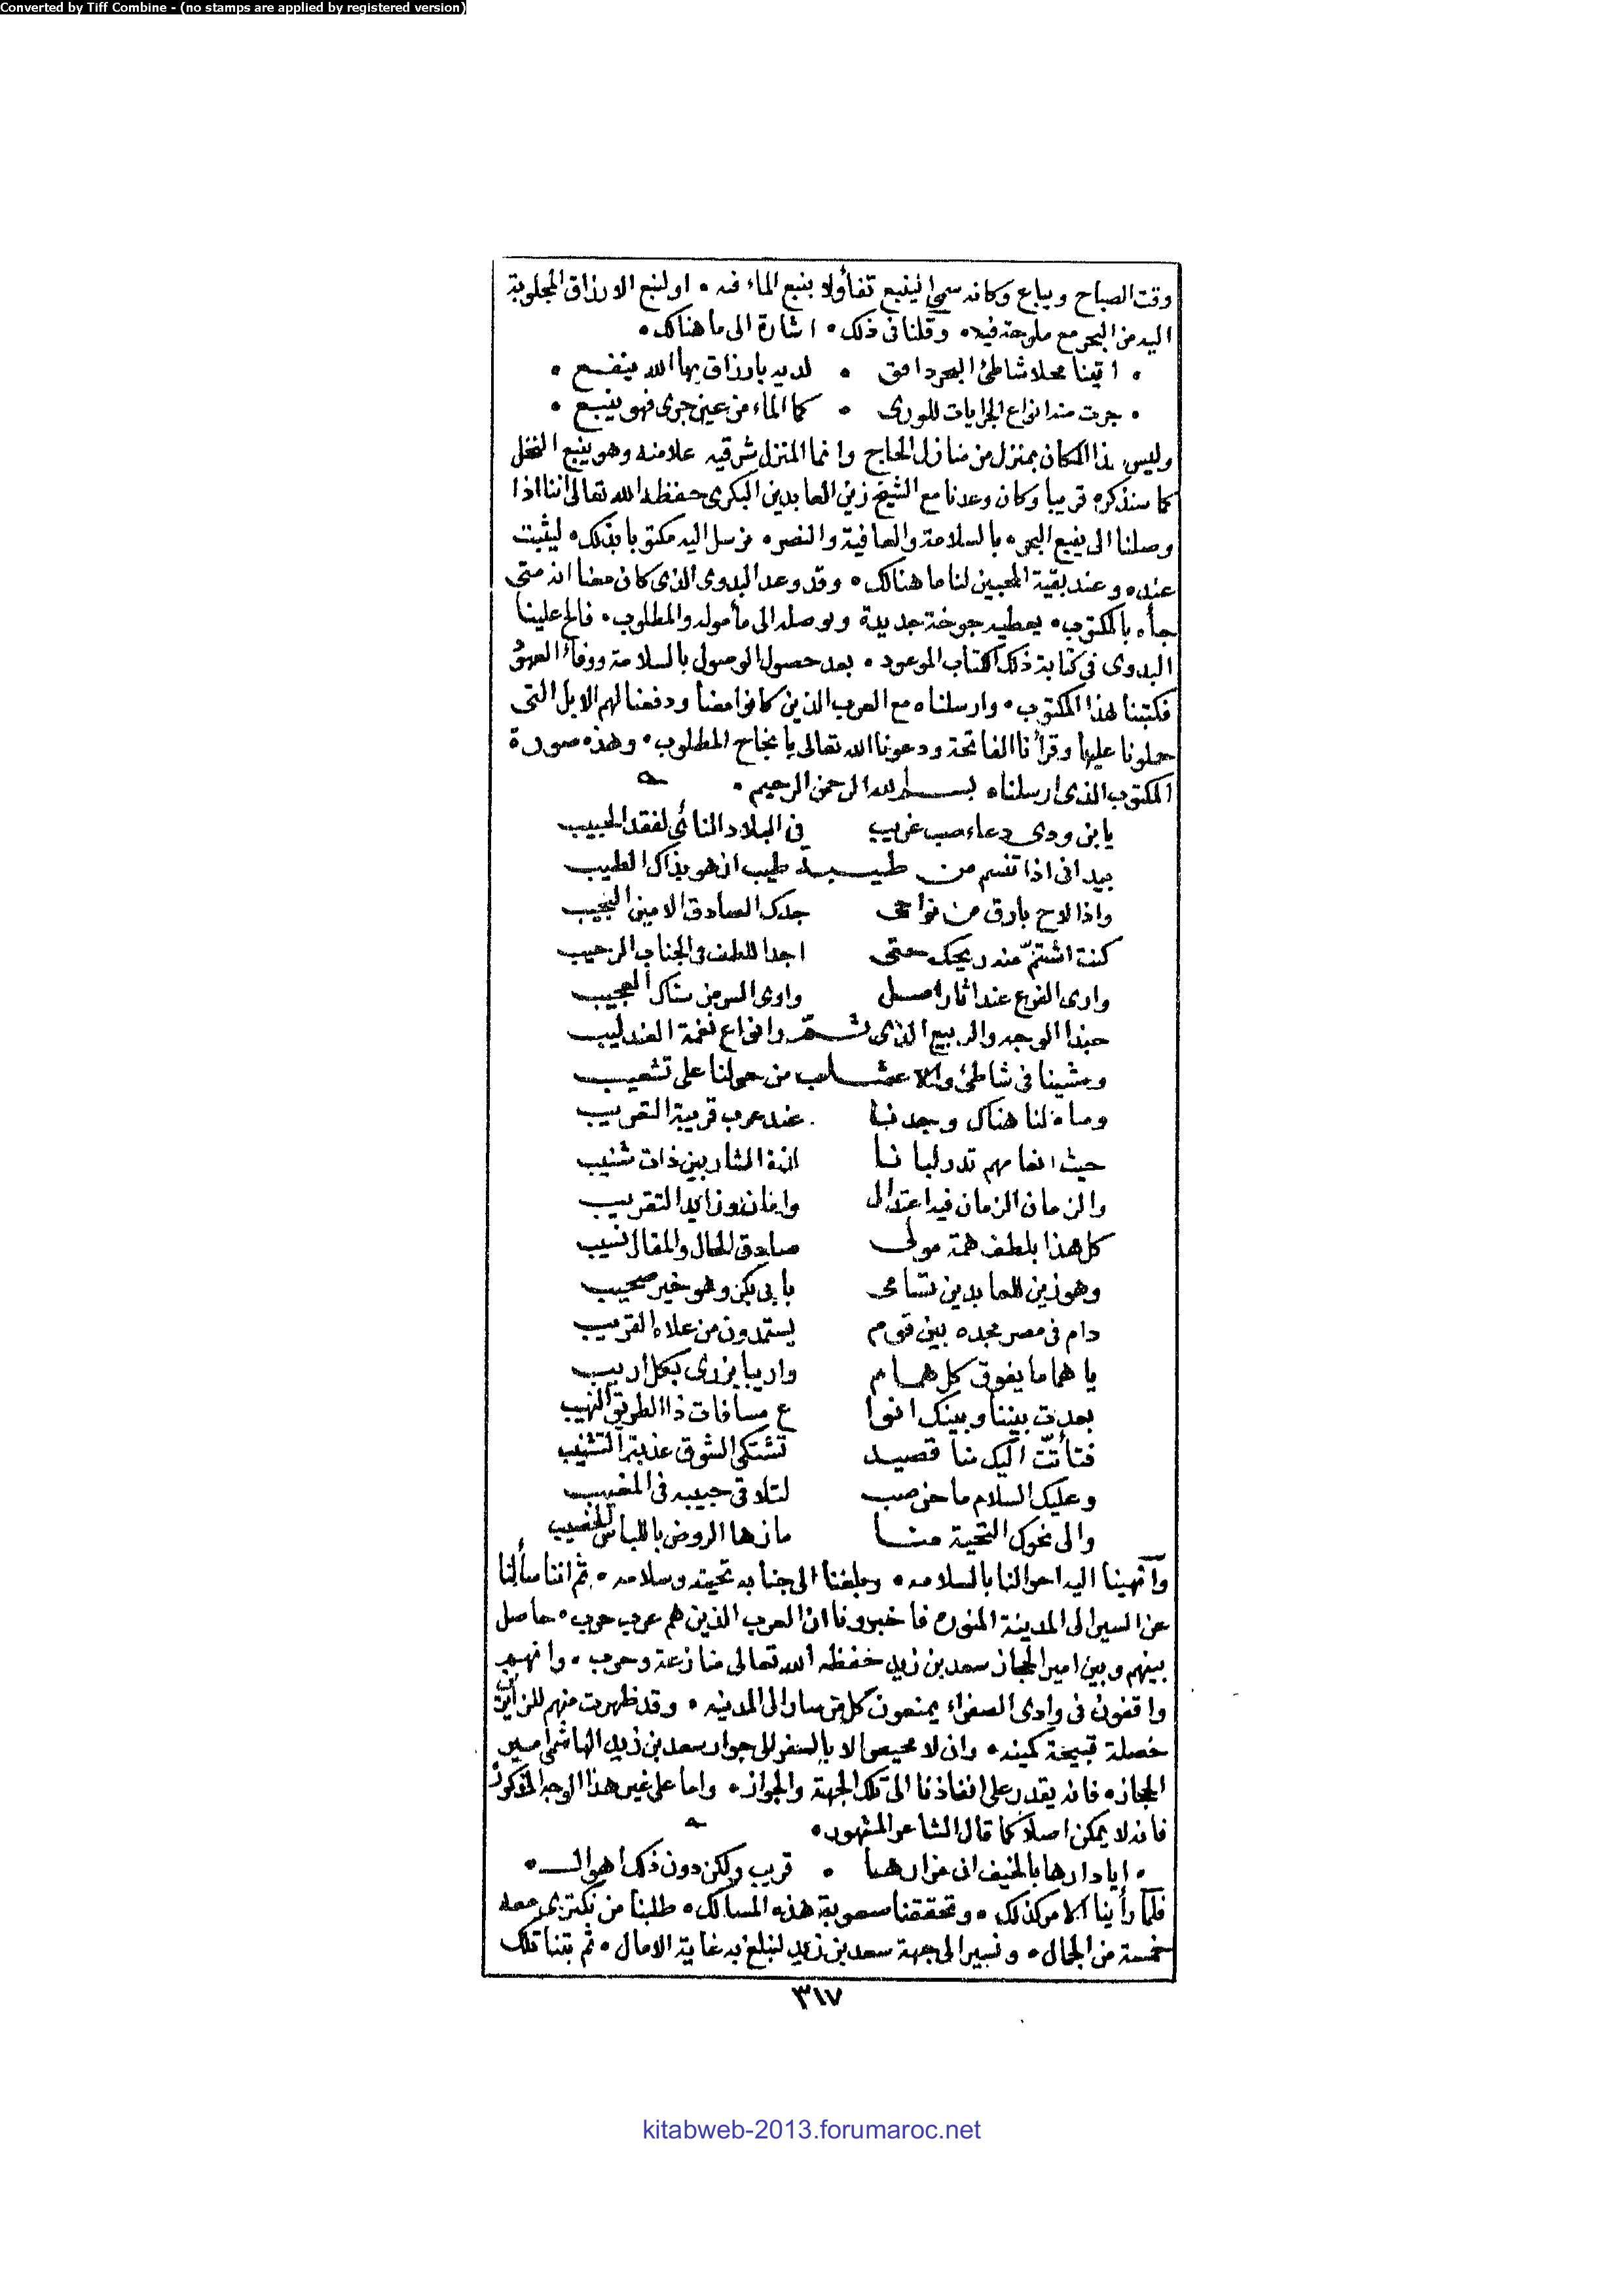 Converted by Tiff Combine - (no stamps are applied by registered version)
وقت الصباح ويباع وكانه سمى الينبع تفأولا بنبع الماء فيه • او لنبع الارزاق المجلوبة
اليه من البحر مع ملوحة فيه • وقلنا فى ذلك • اشارة الى ما هنالك •
• اتينا محلا شاطئ البحر دافق • لديه بارزاق بها الله ينفع •
• جرت منه انواع الجرايات للورى • كما الماء من عين جرى فهو ينبع •
وليس هذا المكان بمنزل من منازل الحاج وانما المنزل شرقيه علامنه وهو ينبع النخل
كما سنذكره قريبا وكان وعدنا مع الشيخ زين العابدين البكرى حفظه الله تعالى اننا اذا
وصلنا الى ينبع البحر • بالسلامة والعافية والنصر • نرسل اليه مكتوبا بذلك • ليثبت
عنده وعند بقية المحبين لنا ما هنالك • وقد وعد البدوى الذى كان معنا انه متى
جأه بالمكتوب • يعطيه جوخة جديدة ويوصله الى مأموله والمطلوب • فالح علينا
البدوى فى كتابة ذلك الكتاب الموعود • بعد حصول الوصول بالسلامة ووفاء العهود
فكتبنا لهذا المكتوب • وارسلناه مع العرب الذين كانوا معنا ودفعنا لهم الابل التى
حملونا عليها وقرأنا الفاتحة ودعونا الله تعالى بانجاح المطلوب • وهذه صورة
المكتوب الذى ارسلناه بسم الله الرحمن الرحيم •
يا ابن ودى دعاء صب غريب فى البلاد النائى لفقد الحبيب
بيد انى اذا تنسم من طيبة طيب ازهو بذاك الطيب
واذا لاح بارق من نواحى جدك الصادق الامين النجيب
كنت اشتم منه ريحك حتى اجد اللطف فى الجناب الرحيب
وارى الفرع عند اثار اصل وارى السر من سناك العجيب
حبذا الوجه والربيع الذى ثم وانواع نغمة العندليب
ومشينا فى شاطئ والاعشاب من حولنا على تشعيب
ومياه لنا هناك وجدنا عند عرب قريبة التقريب
حيث انعامهم تدر لبانا لذة الشاربين ذات شنيب
والزمان الزمان فيه اعتدال وامان وزايد التقريب
كل هذا بلطف همة مولى صادق الحال والمقال نسيب
وهو زين للعابدين تسامى بابى بكر وهو خير صحيب
دام فى مصر مجده بين قوم يستمدون من علاه القريب
يا هماما يفوق كل همام واريبا يزرى بكل اريب
بعدت بيننا وبينك انوا ع مسافات ذا الطريق النهيب
فتأنت اليك منا قصيد تشتكى الشوق عذبة التشبيب
وعليك السلام ما حن صب لتلاقى حبيبه فى المغيب
والى نحوك التحية منا ما زها الروض باللباس الخضيب
وأنهينا اليه احوالنا بالسلامه • وبلغنا الى جنابه تحيته وسلامه • ثم اننا سألنا
عن السير الى المدينة المنوره فاخبرونا ان العرب الذين هم عرب حرب • حاصل
بينهم وبين امير الحجاز سعد بن زيد حفظه الله تعالى منازعة وحرب • وانهم
واقفون فى وادى الصفراء يمنعون كل من سار الى المدينه • وقد ظهرت منهم للزائرين
خصلة قبيحة كمينه • وان لا محيص الا بالسفر الى جوار سعد بن زيد الهاشمى امير
الحجاز • فانه يقدر على انفاذنا الى تلك الجهة والجواز • واما على غير هذا الوجه المذكور
فانه لا يمكن اصلا كما قال الشاعر المشهور •
• ايا دارها بالخيف ان مزارها • قريب ولكن دون ذلك اهوال •
فلما رأينا الامر كذلك • وتحققنا صعوبة هذه المسالك • طلبنا من نكترى معه
خمسة من الجمال • ونسير الى جهة سعد بن زيد لنبلغ به غاية الامال • ثم بتنا تلك
٣١٧
kitabweb-2013.forumaroc.net